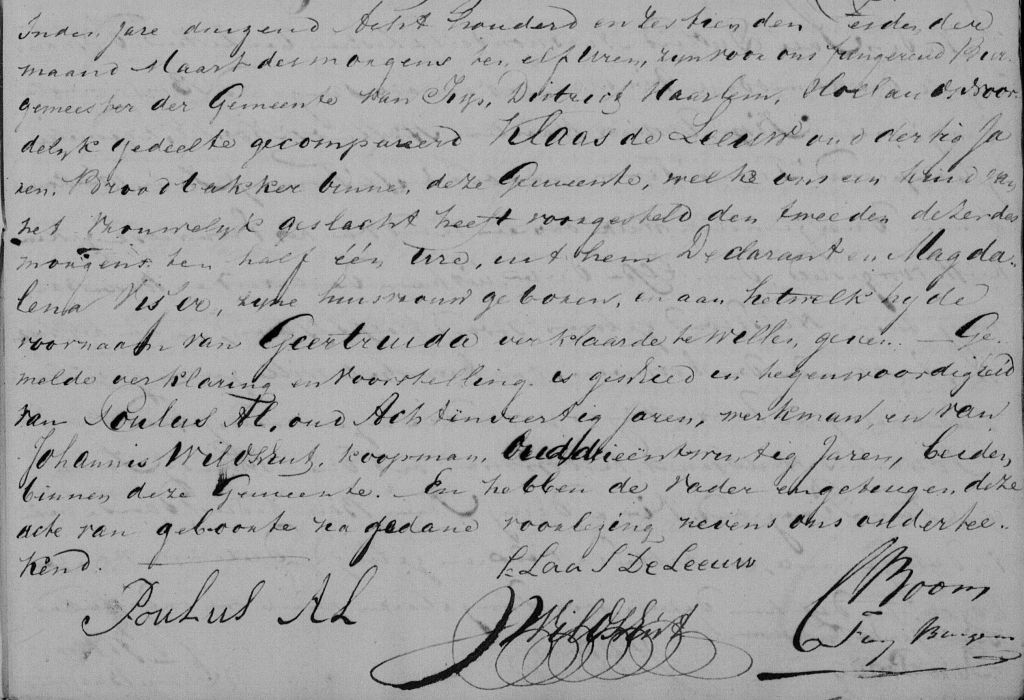 In den jare duizend Acht honderd en zestien den Eersten der
maand Maart des morgens ten elf uren, zyn voor ons fungerend Bur-
gemeester der Gemeente van Jisp, District Haarlem, Holland, Noor-
delyk gedeelte gecompareerd Klaas de Leeuw oud dertig Ja
ren, Broodbakker binnen deze Gemeente, welke ons een kind van
het Vrouwelyk geslacht heeft voorgesteld den tweeden dezer des
morgens ten half één ure, uit hem Declarant en Magda-
lena Visser, zyne huisvrouw geboren, en aan hetwelk hy de
voornaam van Geertruida verklaarde te willen geven. — Ge-
melde verklaring en voorstelling is geschied in tegenwoordigheid
van Poulus Al, oud Achtenveertig Jaren, werkman, en van
Johannis Wildschut, koopman, Oud drieëntwintig Jaren, beiden
binnen deze Gemeente. — En hebben de vader en getuigen deze
acte van geboorte na gedane voorlezing nevens ons ondertee-
kend.
Klaas De Leeuw
Poulus AL
JWildschut
CBoom
Fung Burgem